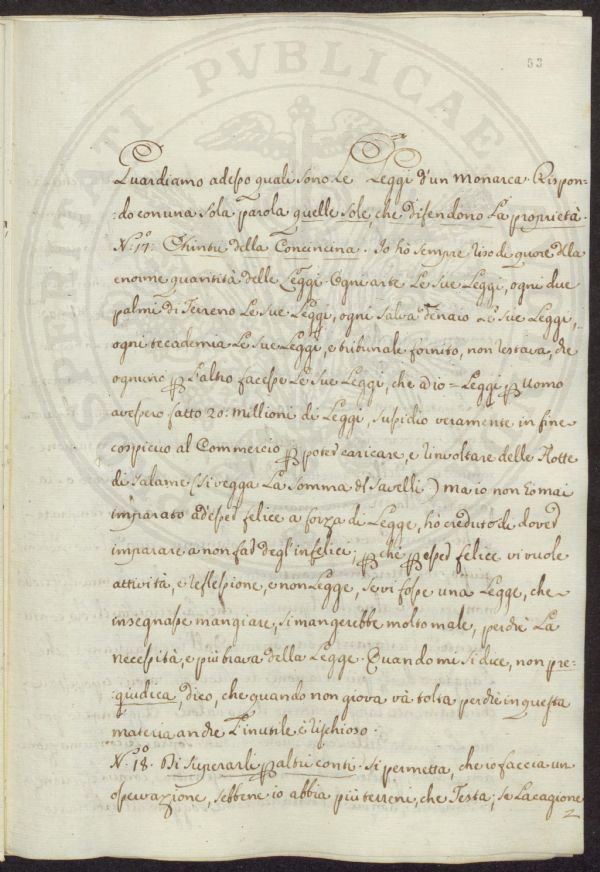 53
PROSPERITATI PVBLICAE
Guardiamo adesso quali sono le Leggi d'un Monarca. Rispon=
=do con una sola parola quelle sole, che difendono la proprietà.
N.º 17. Chintu della Concincina. Io hò sempre riso di quore dlla
enorme quantità delle Leggi. Ogni arte le sue Leggi, ogni due
palmi di Terreno le sue Leggi, ogni salva denaio le sue Leggi,
ogni Accademia le sue Leggi, e tribunale fornito, non restava, che
ognuno p l'altro facesse le sue Leggi, che a dio = Leggi p Uomo
avessero fatto 20. millioni di Leggi, susidio veramente in fine
cospicuo al Commercio p poter caricare, e rinvoltare delle Flotte
di Salame (si vegga la somma dl Savelli.) ma io non hò mai
imparato ad esser felice a forza di Legge, hò creduto di dover
imparare a non far degl'infelici; p chè p esser felice vi vuole
attività, e reflessione, e non Legge, se vi fosse una Legge, che
insegnasse mangiare, si mangerebbe molto male, perchè la
necessità, e più brava della Legge. Quando mi si dice, non pre=
giudica, dico, che quando non giova và tolta perchè in questa
materia anche l'inutile è rischioso.
N.º 18. Di Superarli p altri conti. Si permetta, che io faccia un
osservazione, sebbene io abbia più terreni, che Testa; se la cagione